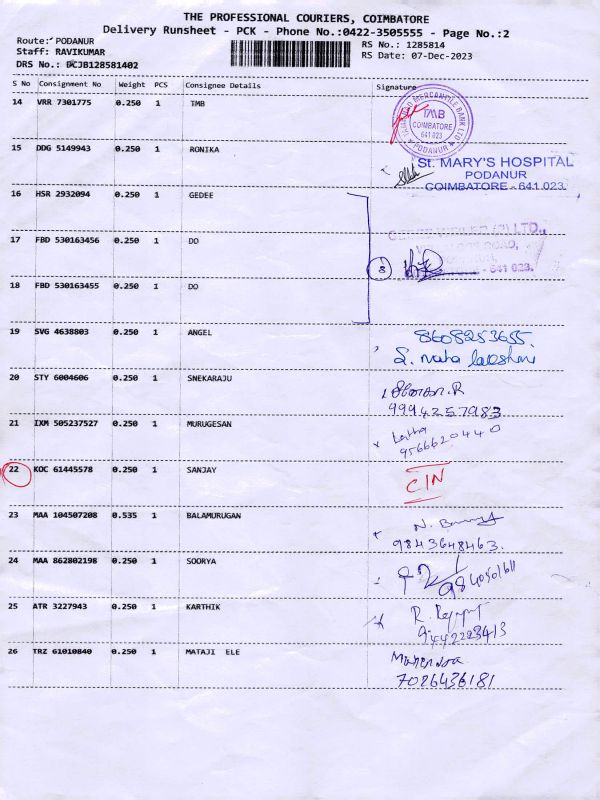 THE PROFESSIONAL COURIERS, COIMBATORE
Delivery Runsheet - PCK - Phone No.:0422-3505555 - Page No.:2
Route: PODANUR
RS No.: 1285814
Staff: RAVIKUMAR
RS Date: 07-Dec-2023
DRS No.: DCJB128581402
S No Consignment No Weight PCS Consignee Details Signature
14 VRR 7301775 0.250 1 TMB
MERCANTILE BANK LTD
TMB
COIMBATORE
641 023
PODANUR
15 DDG 5149943 0.250 1 RONIKA
St. MARY'S HOSPITAL
PODANUR
COIMBATORE - 641 023.
16 HSR 2932094 0.250 1 GEDEE
17 FBD 530163456 0.250 1 DO
LTD.,
ROAD,
3
- 641 023.
18 FBD 530163455 0.250 1 DO
19 SVG 4638803 0.250 1 ANGEL
8608253655.
S. maha lakshmi
20 STY 6004606 0.250 1 SNEKARAJU
9994257983
21 IXM 505237527 0.250 1 MURUGESAN
Latha
9566620440
22 KOC 61445578 0.250 1 SANJAY
CIN
23 MAA 104507208 0.535 1 BALAMURUGAN
9843648463.
24 MAA 862802198 0.250 1 SOORYA
25 ATR 3227943 0.250 1 KARTHIK
9442223413
26 TRZ 61010840 0.250 1 MATAJI ELE
7026436181